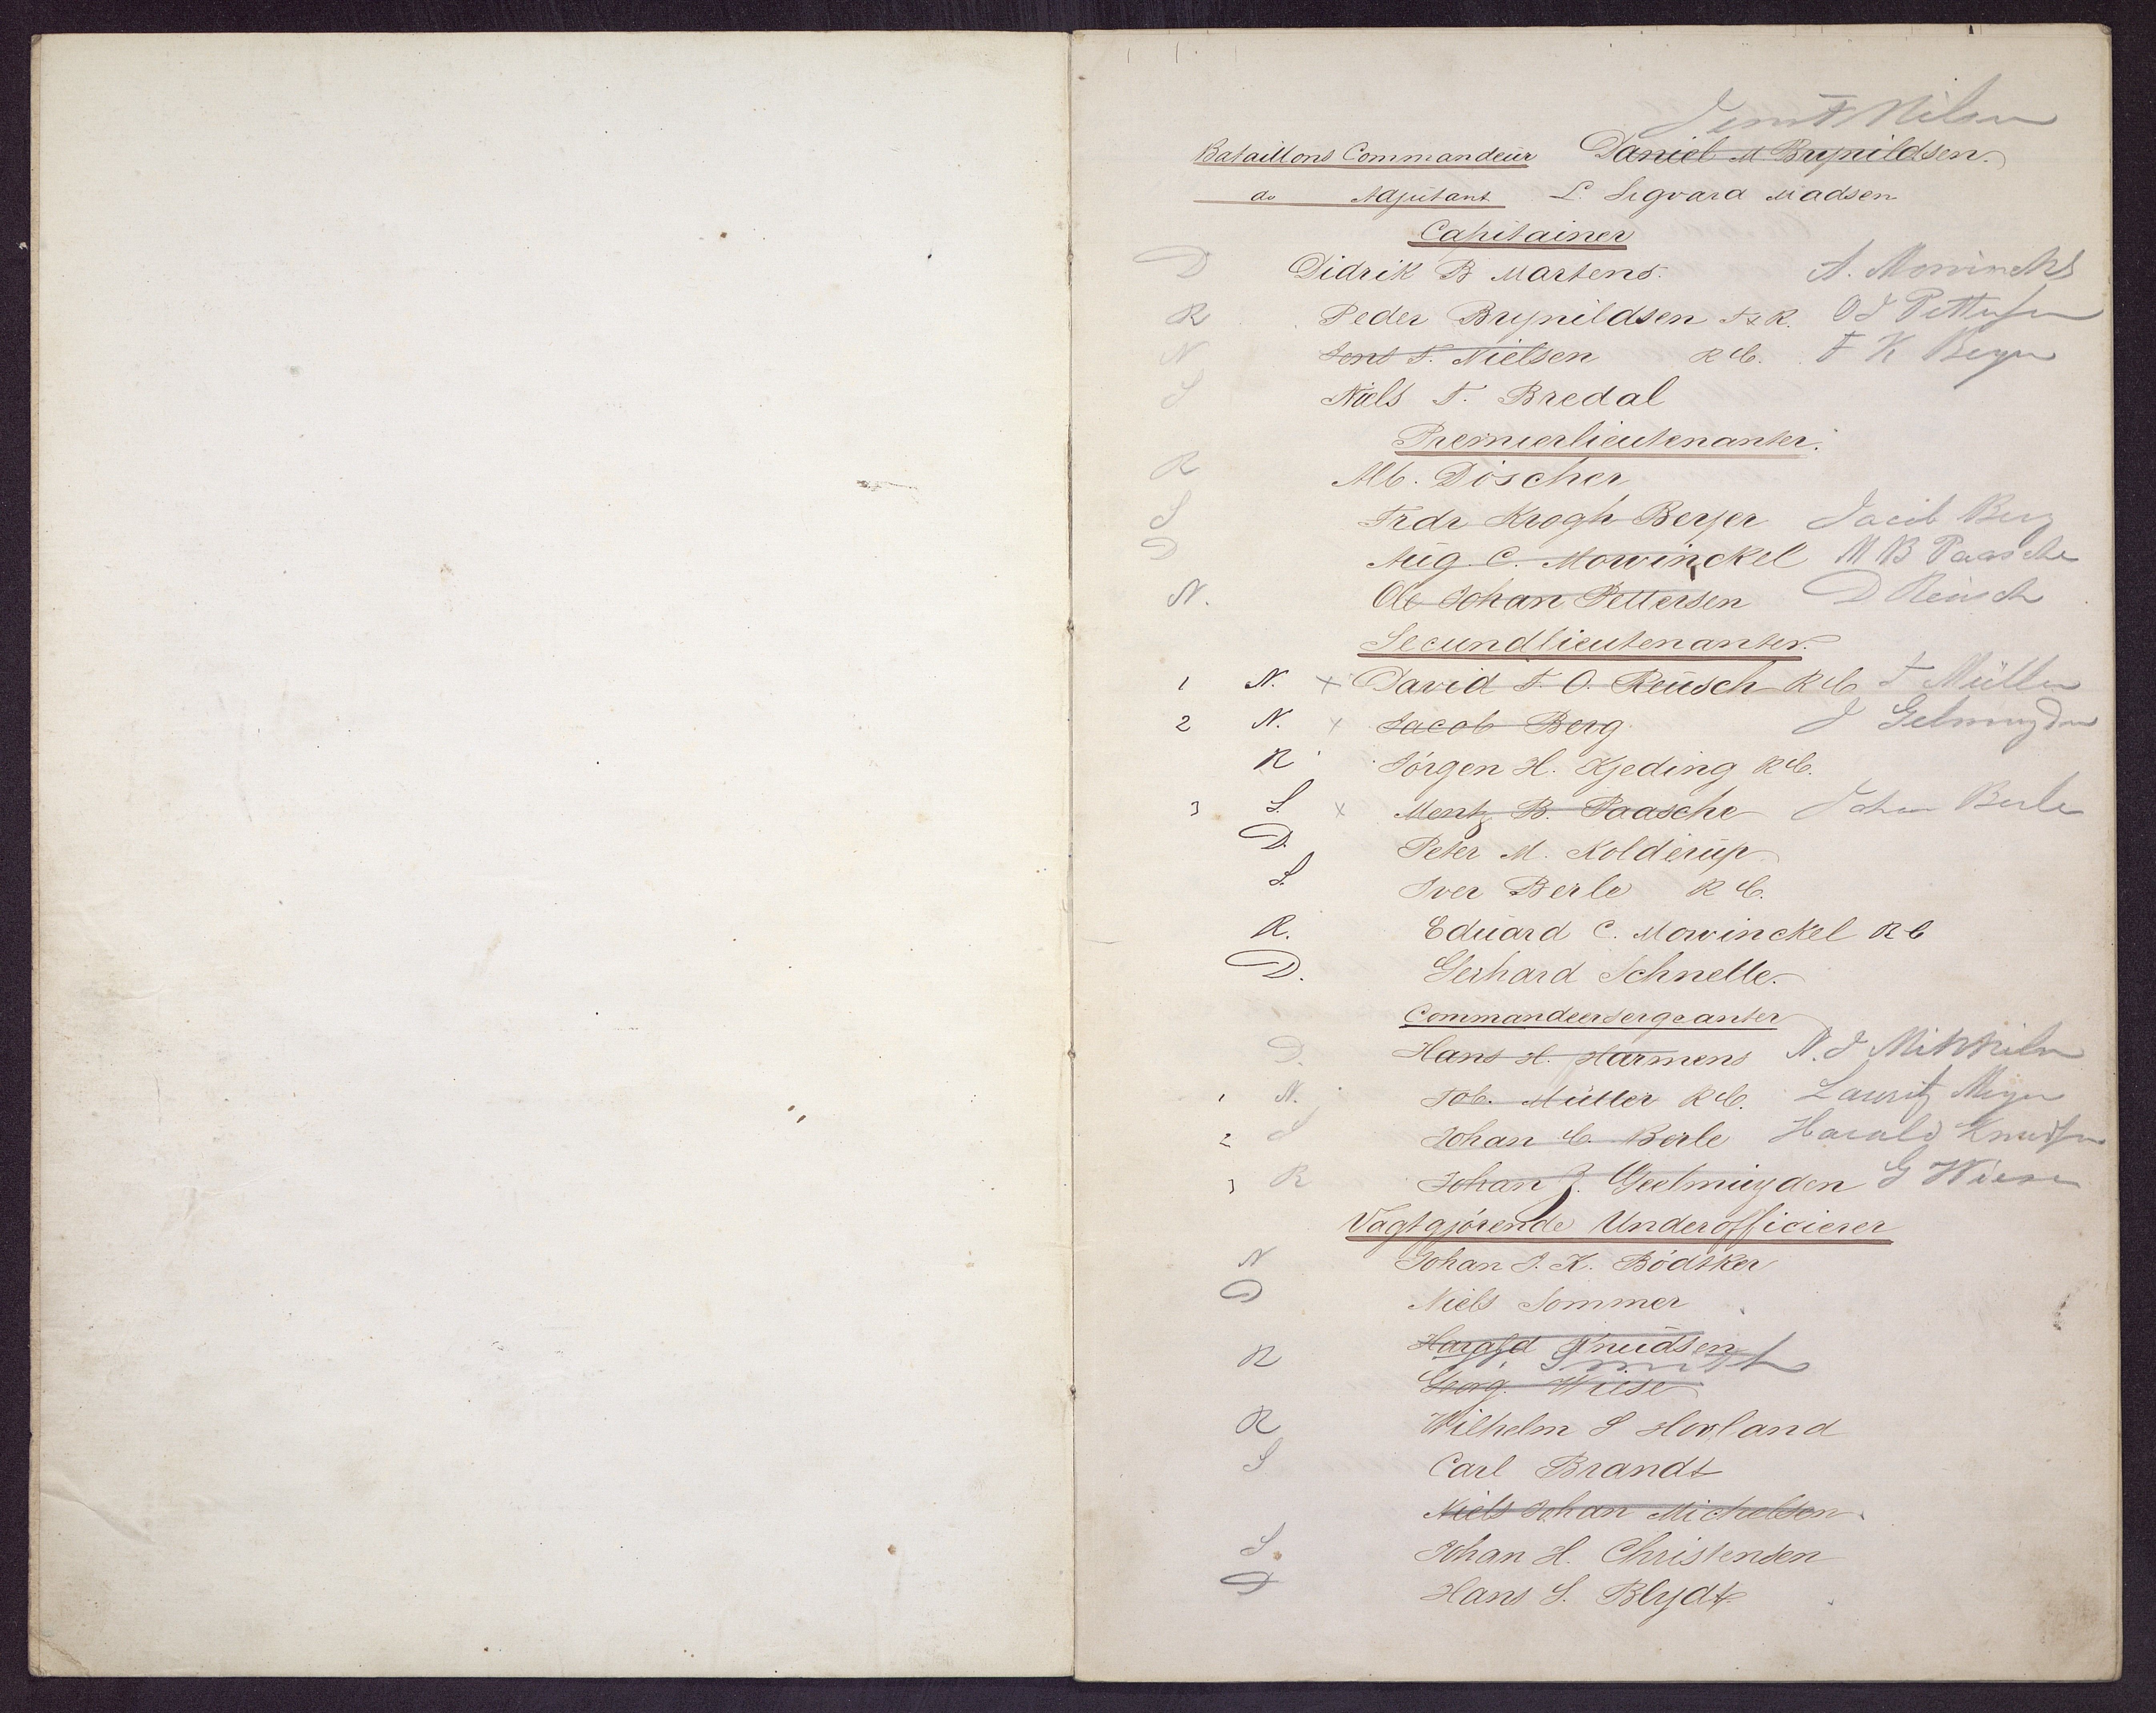 Jens F Nilsen
Bataillons Commandeur Daniel M Brynildsen.
do Adjutant L. Sigvard Madsen
Capitainer
D Didrik B Martens. A. Mowinckel
R Peder Brynildsen F&R. O J Pettersen
N Jens F. Nielsen RC. F K Beyer
S Niels F. Bredal
Premierlieutenanter.
R Alb. Döscher
S Frdr Krogh Beyer Jacob Berg
D Aug. C. Mowinckel M B Paasche
N. Ole Johan Pettersen D Reusch
Secundlieutenanter.
1 N. x David F. O. Reusch RC F Müller
2 N. x Jacob Berg J Gelmuyden
R Jørgen H. Kjeding RC.
3 S. x Mentz B. Paasche Johan Berle
D. Peter M. Kolderup
S. Iver Berle RC.
R. Eduard C. Mowinckel RC
D. Gerhard Schnelle.
Commandeersergeanter
D. Hans H. Harmens N. J Mikkelsen
1 N. Tob. Müller RC. Lauritz Meyer
2 S Johan C. Berle Harald Knudsen
3 R Johan J. Geelmuyden G Wiese
Vagtgjørende Underofficierer
N Johan J. K. Bödtker
D Niels Sommer
Harald Knudsen
R Smith
Georg. Wiese
R Wilhelm S Howland
S Carl Brandt
Niels Johan Michelsen.
S. Johan H. Christensen
D Hans S. Blydt